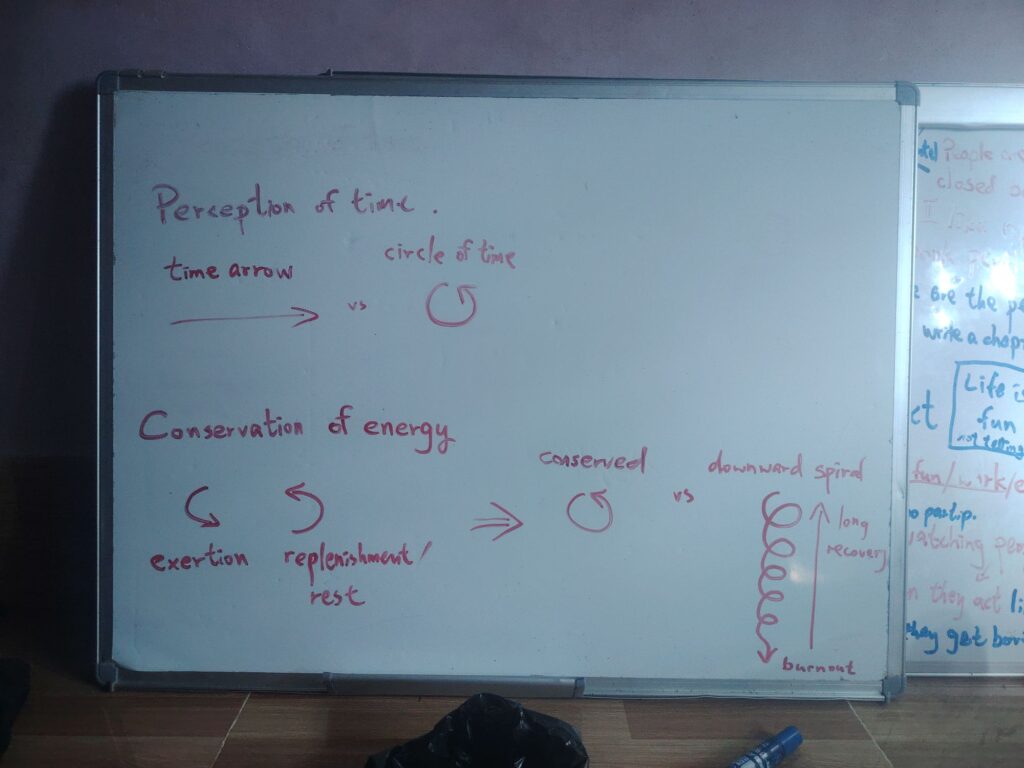 Perception of time.
time arrow
vs
circle of time
Conservation of energy
exertion
replenishment/
rest
conserved
vs
downward spiral
long
recovery
burnout
People are
closed
II
are the
write a
ct
Life is
fun
fun/work/e
partip.
watching
they act
they get